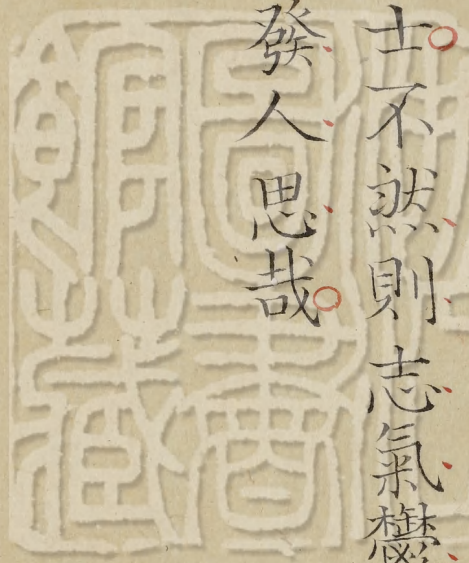 士不然則志氣鬱
發人思哉